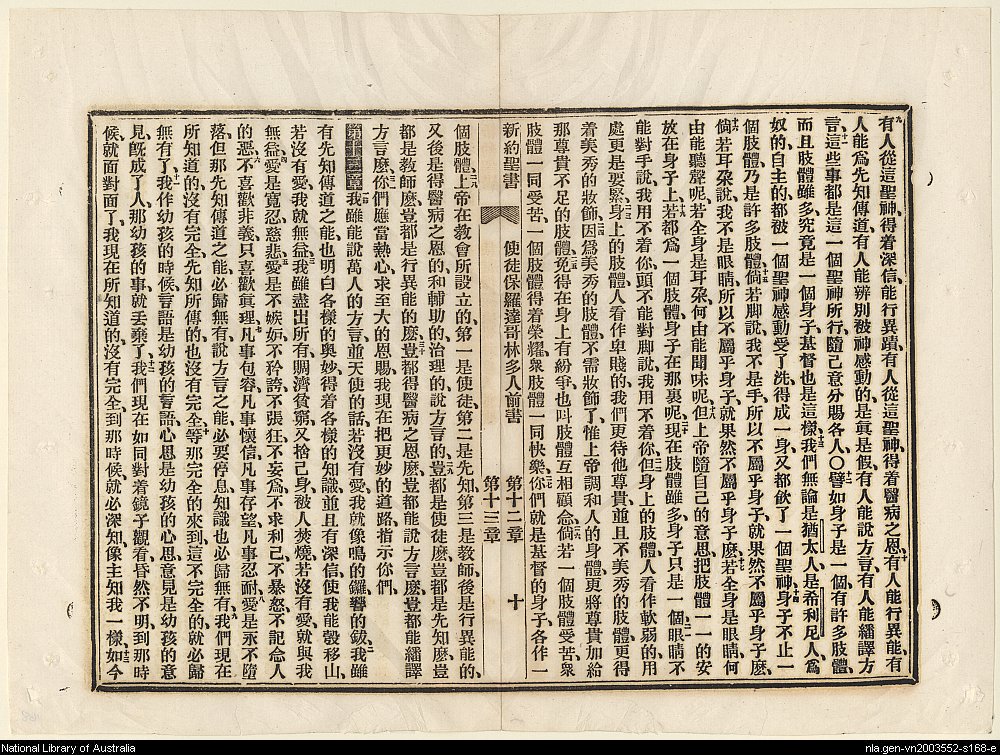 有人從這聖神、得着深信、能行異蹟、有人從這聖神、得着醫病之恩、有人能行異能、有
人能爲先知傳道、有人能辨別被神感動的是眞是假、有人能說方言、有人能繙譯方
言、這些事都是這一個聖神所行、隨己意分賜各人、〇譬如身子是一個、有許多肢體、
而且肢體雖多、究竟是一個身子、基督也是這樣、我們無論是猶太人、是希利尼人、爲
奴的、自主的、都被一個聖神感動、受了洗、得成一身、又都飲了一個聖神、身子不止一
個肢體、乃是許多肢體、倘若脚說、我不是手、所以不屬乎身子、就果然不屬乎身子麽、
倘若耳朶說、我不是眼睛、所以不屬乎身子、就果然不屬乎身子麽、若全身是眼睛、何
由能聽聲呢、若全身是耳朶、何由能聞味呢、但上帝隨自己的意思、把肢體一一的安
放在身子上、若都爲一個肢體、身子在那裏呢、現在肢體雖多、身子只是一個、眼睛不
能對手說、我用不着你、頭不能對脚說、我用不着你、但身上的肢體、人看作軟弱的、用
處更是要緊、身上的肢體、人看作卑賤的、我們更待他尊貴、並且不美秀的肢體、更得
着美秀的妝飾、因爲美秀的肢體、不需妝飾了、惟上帝調和人的身體、更將尊貴加給
那尊貴不足的肢體、免得在身上有紛爭、也叫肢體互相顧念、倘若一個肢體受苦、衆
肢體一同受苦、一個肢體得着榮耀、衆肢體一同快樂、你們就是基督的身子、各作一
新約聖書 使徒保羅達哥林多人前書 第十二章 十
第十三章
個肢體、上帝在教會所設立的、第一是使徒、第二是先知、第三是教師、後是行異能的、
又後是得醫病之恩的、和輔助的、治理的、說方言的、豈都是使徒麽、豈都是先知麽、豈
都是教師麽、豈都是行異能的麽、豈都得醫病之恩麽、豈都能說方言麽、豈都能繙譯
方言麽、你們應當熱心求至大的恩賜、我現在把更妙的道路、指示你們、
第十三章我雖能說萬人的方言、並天使的話、若沒有愛、我就像鳴的鑼、響的鈸、我雖
有先知傳道之能、也明白各樣的奧妙、得着各樣的知識、並且有深信、使我能彀移山、
若沒有愛、我就無益、我雖盡出所有賙濟貧窮、又捨己身被人焚燒、若沒有愛、就與我
無益、愛是寬忍、慈悲、愛是不嫉妒、不矜誇、不張狂、不妄爲、不求利己、不暴怒、不記念人
的惡、不喜歡非義、只喜歡眞理、凡事包容、凡事懷信、凡事存望、凡事忍耐、愛是永不墮
落、但那先知傳道之能、必歸無有、說方言之能、必要停息、知識也必歸無有、我們現在
所知道的、沒有完全、先知所傳的、也沒有完全、等那完全的來到、這不完全的就必歸
無有了、我作幼孩的時候、言語是幼孩的言語、心思是幼孩的心思、意見是幼孩的意
見、旣成了人、那幼孩的事、就丢棄了、我們現在如同對着鏡子觀看、昏然不明、到那時
候、就面對面了、我現在所知道的、沒有完全、到那時候、就必深知、像主知我一樣、如今
National Library of Australia
nla.gen-vn2003552-s168-e